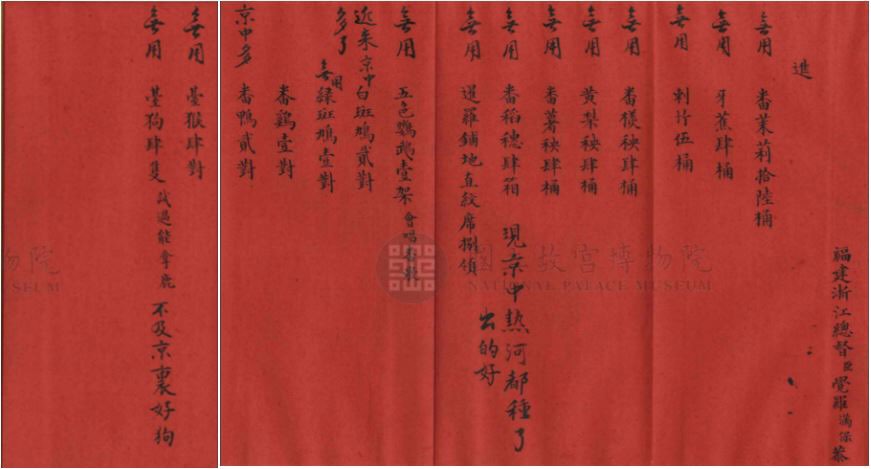 福建浙江總督臣覺羅滿保恭
進
無用 番茉莉拾陸桶
無用 牙蕉肆桶
無用 刺竹伍桶
無用 番檨秧肆桶
無用 黃梨秧肆桶
無用 番薯秧肆桶
無用 番稻穗肆箱 現京中熱河都種了
出的好
無用 暹羅鋪地直紋席捌領
無用 五色鸚鵡壹架 會唱番歌
近來京中多了 白斑鳩貳對
無用 綠斑鳩壹對
番鷄壹對
京中多 番鴨貳對
無用 臺猴肆對
無用 臺狗肆隻 試過能拿鹿 不及京裏好狗
國立故宮博物院
NATIONAL PALACE MUSEUM
物院
SEUM